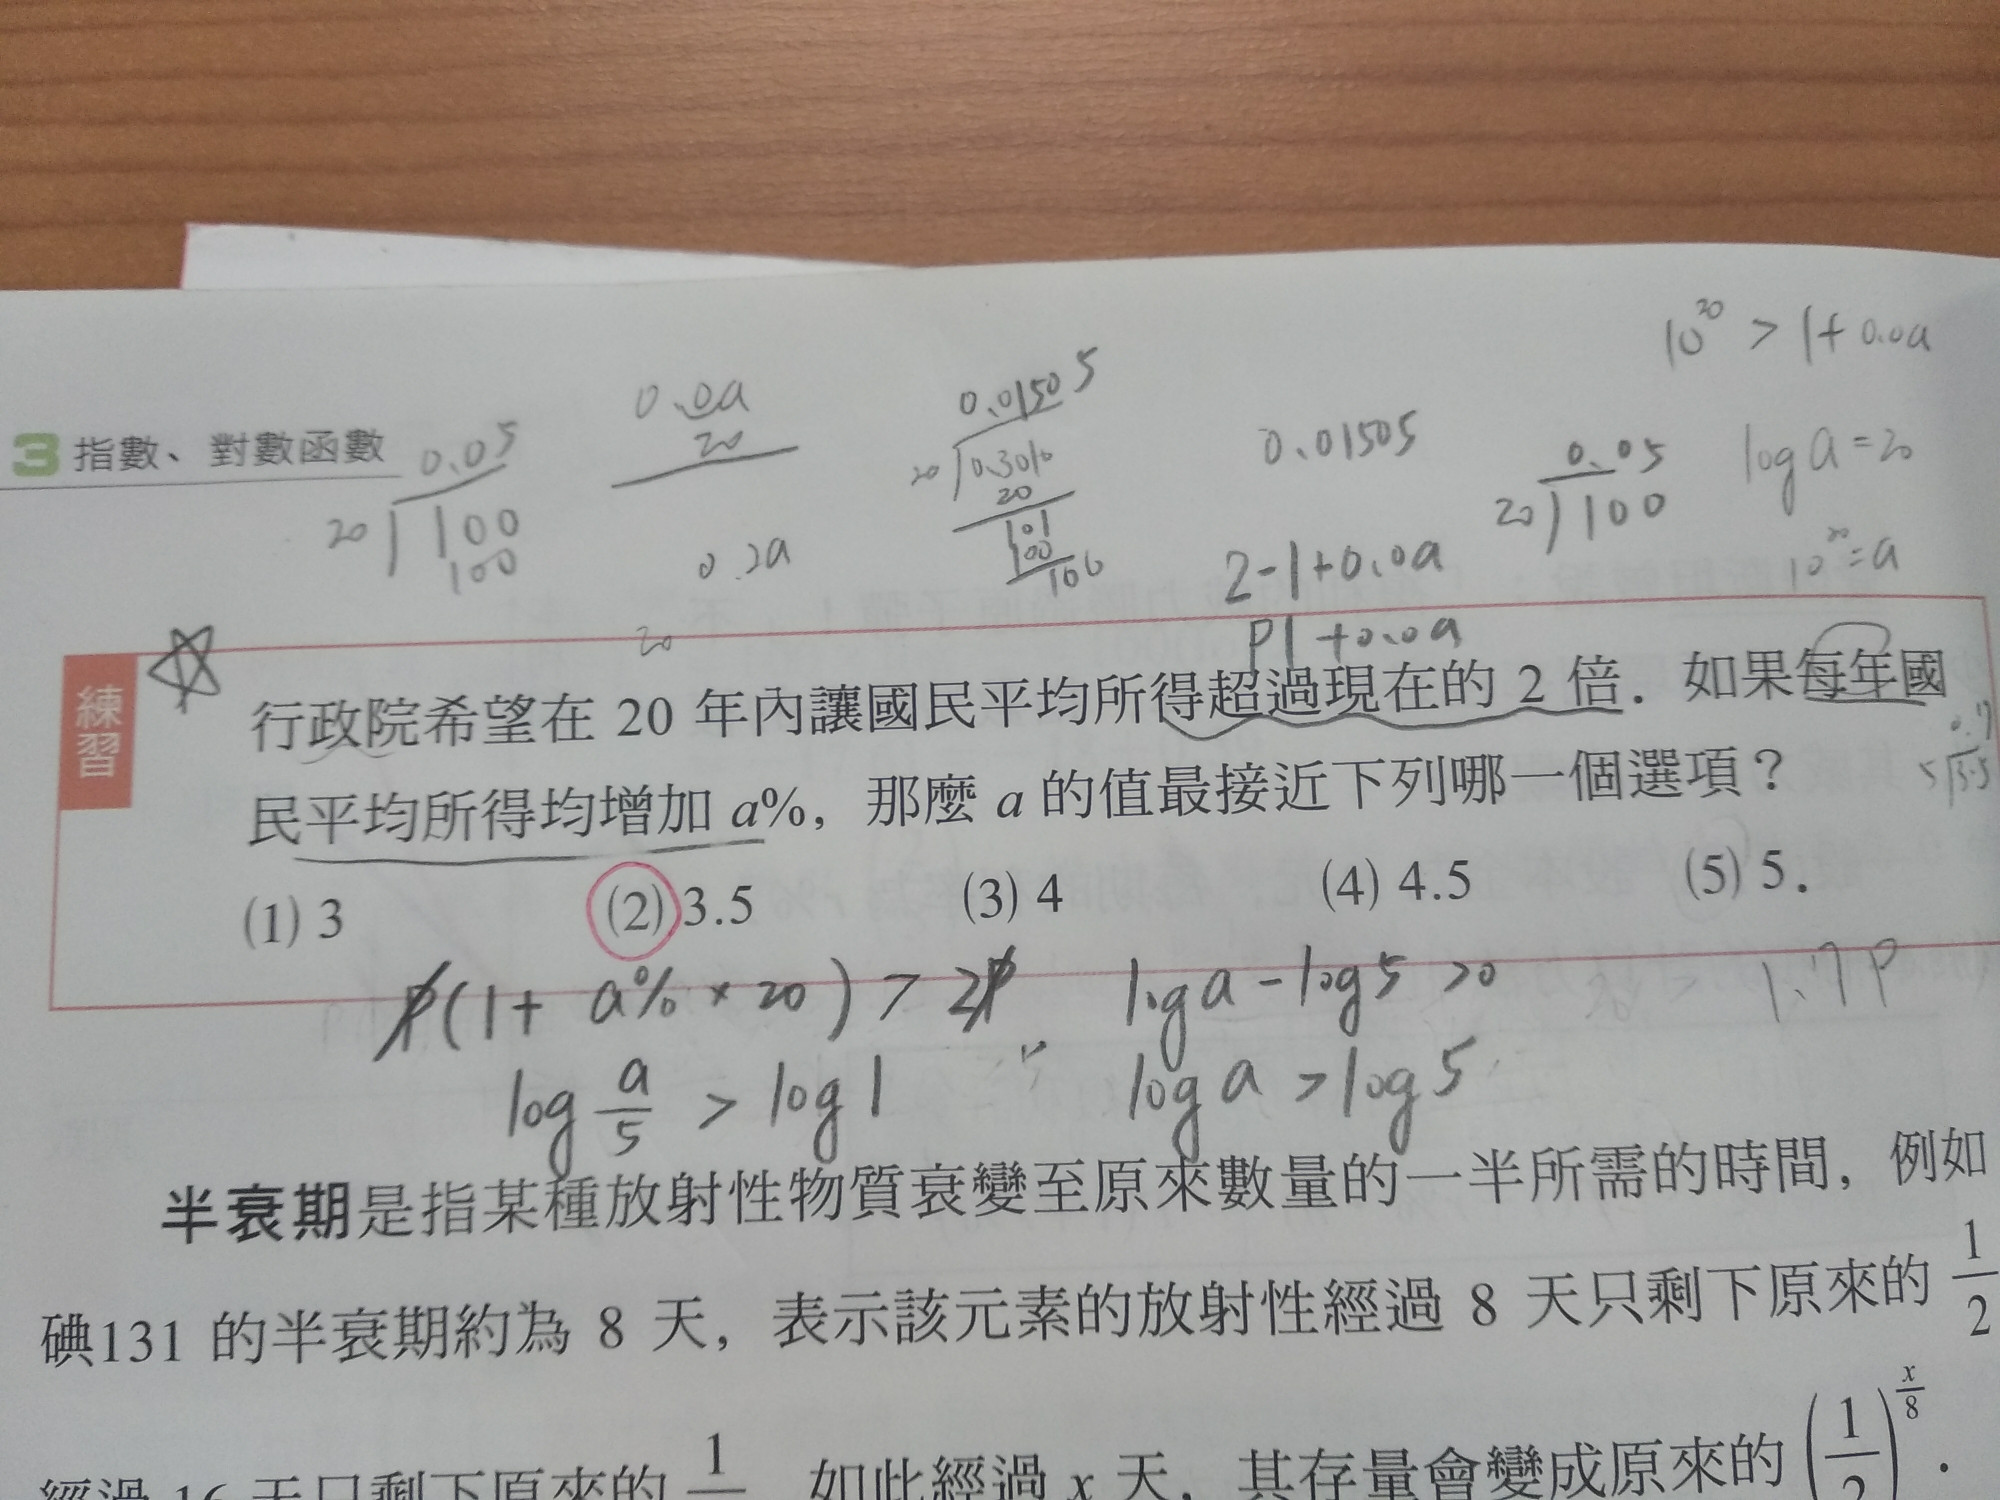 10^20 > 1+0.0a
3 指數、對數函數
0.05
20)100
100
0.0a
20
0.2a
20
0.01505
20)0.3010
20
101
100
100
0.01505
2-1+0.0a
P1+0.0a
0.05
20)100
log a = 20
10^20 = a
練習
行政院希望在 20 年內讓國民平均所得超過現在的 2 倍．如果每年國
民平均所得均增加 a%，那麼 a 的值最接近下列哪一個選項？
0.7
5)3.5
(1) 3 (2) 3.5 (3) 4 (4) 4.5 (5) 5．
P(1+ a% × 20) > 2P log a - log 5 > 0
1.7P
log a/5 > log 1 log a > log 5
半衰期是指某種放射性物質衰變至原來數量的一半所需的時間，例如
碘131 的半衰期約為 8 天，表示該元素的放射性經過 8 天只剩下原來的 1/2
經過 16 天只剩下原來的 1 如此經過 x 天，其存量會變成原來的 (1/2)^(x/8)．